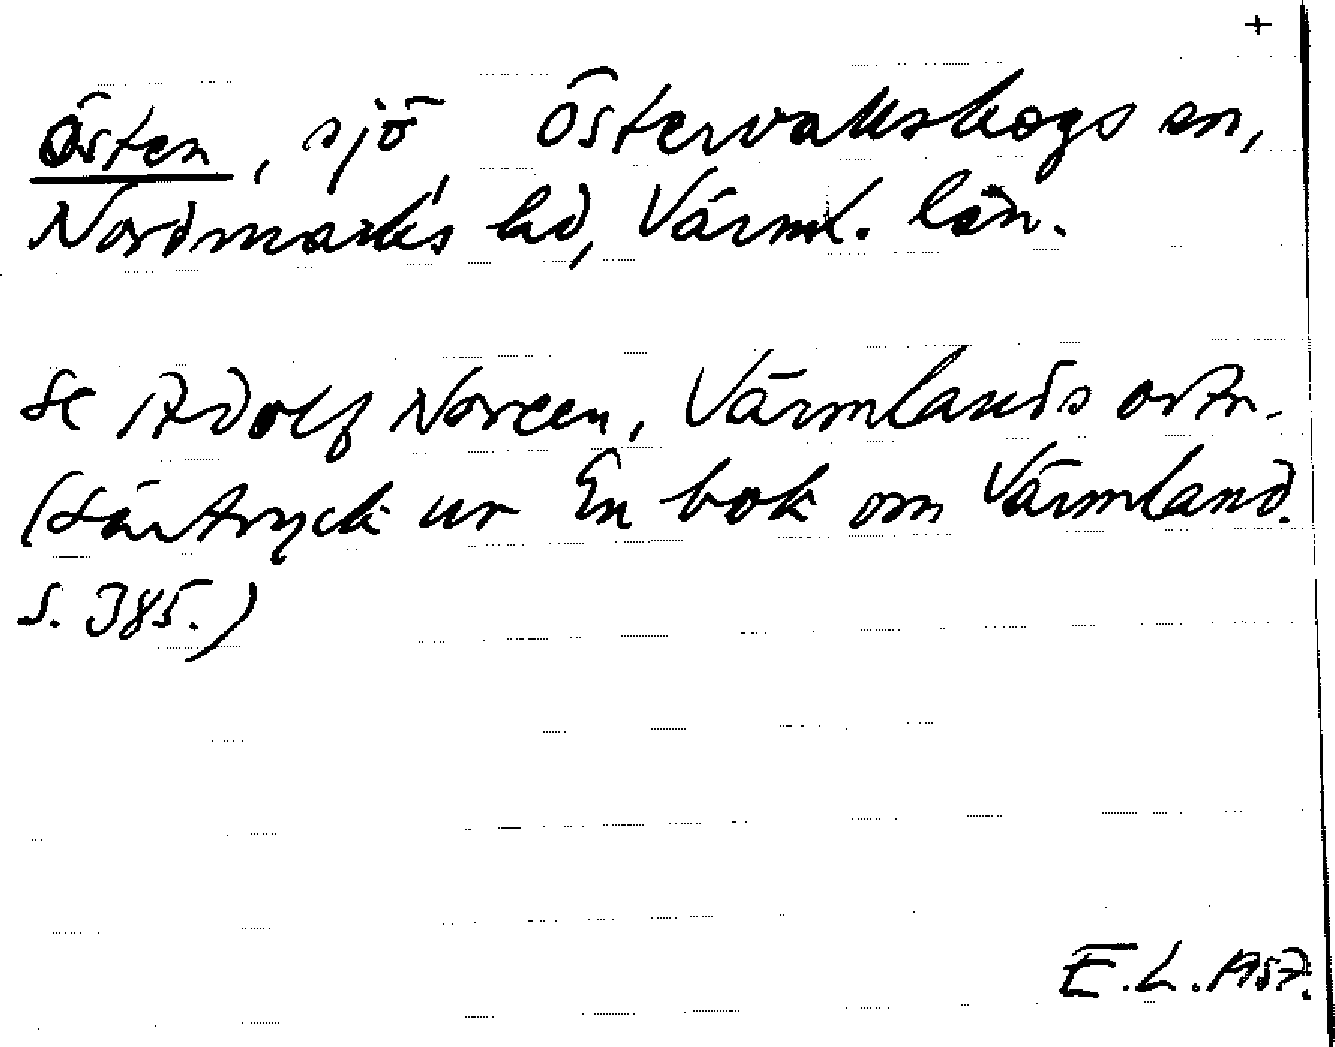 +
Östen, sjö, Östervallskogs sn,
Nordmarks hd, Värml. län.
Se Adolf Noreen, Värmlands ortn.
(Särtryck ur En bok om Värmland.
S. 385.)
E.L. 1957.